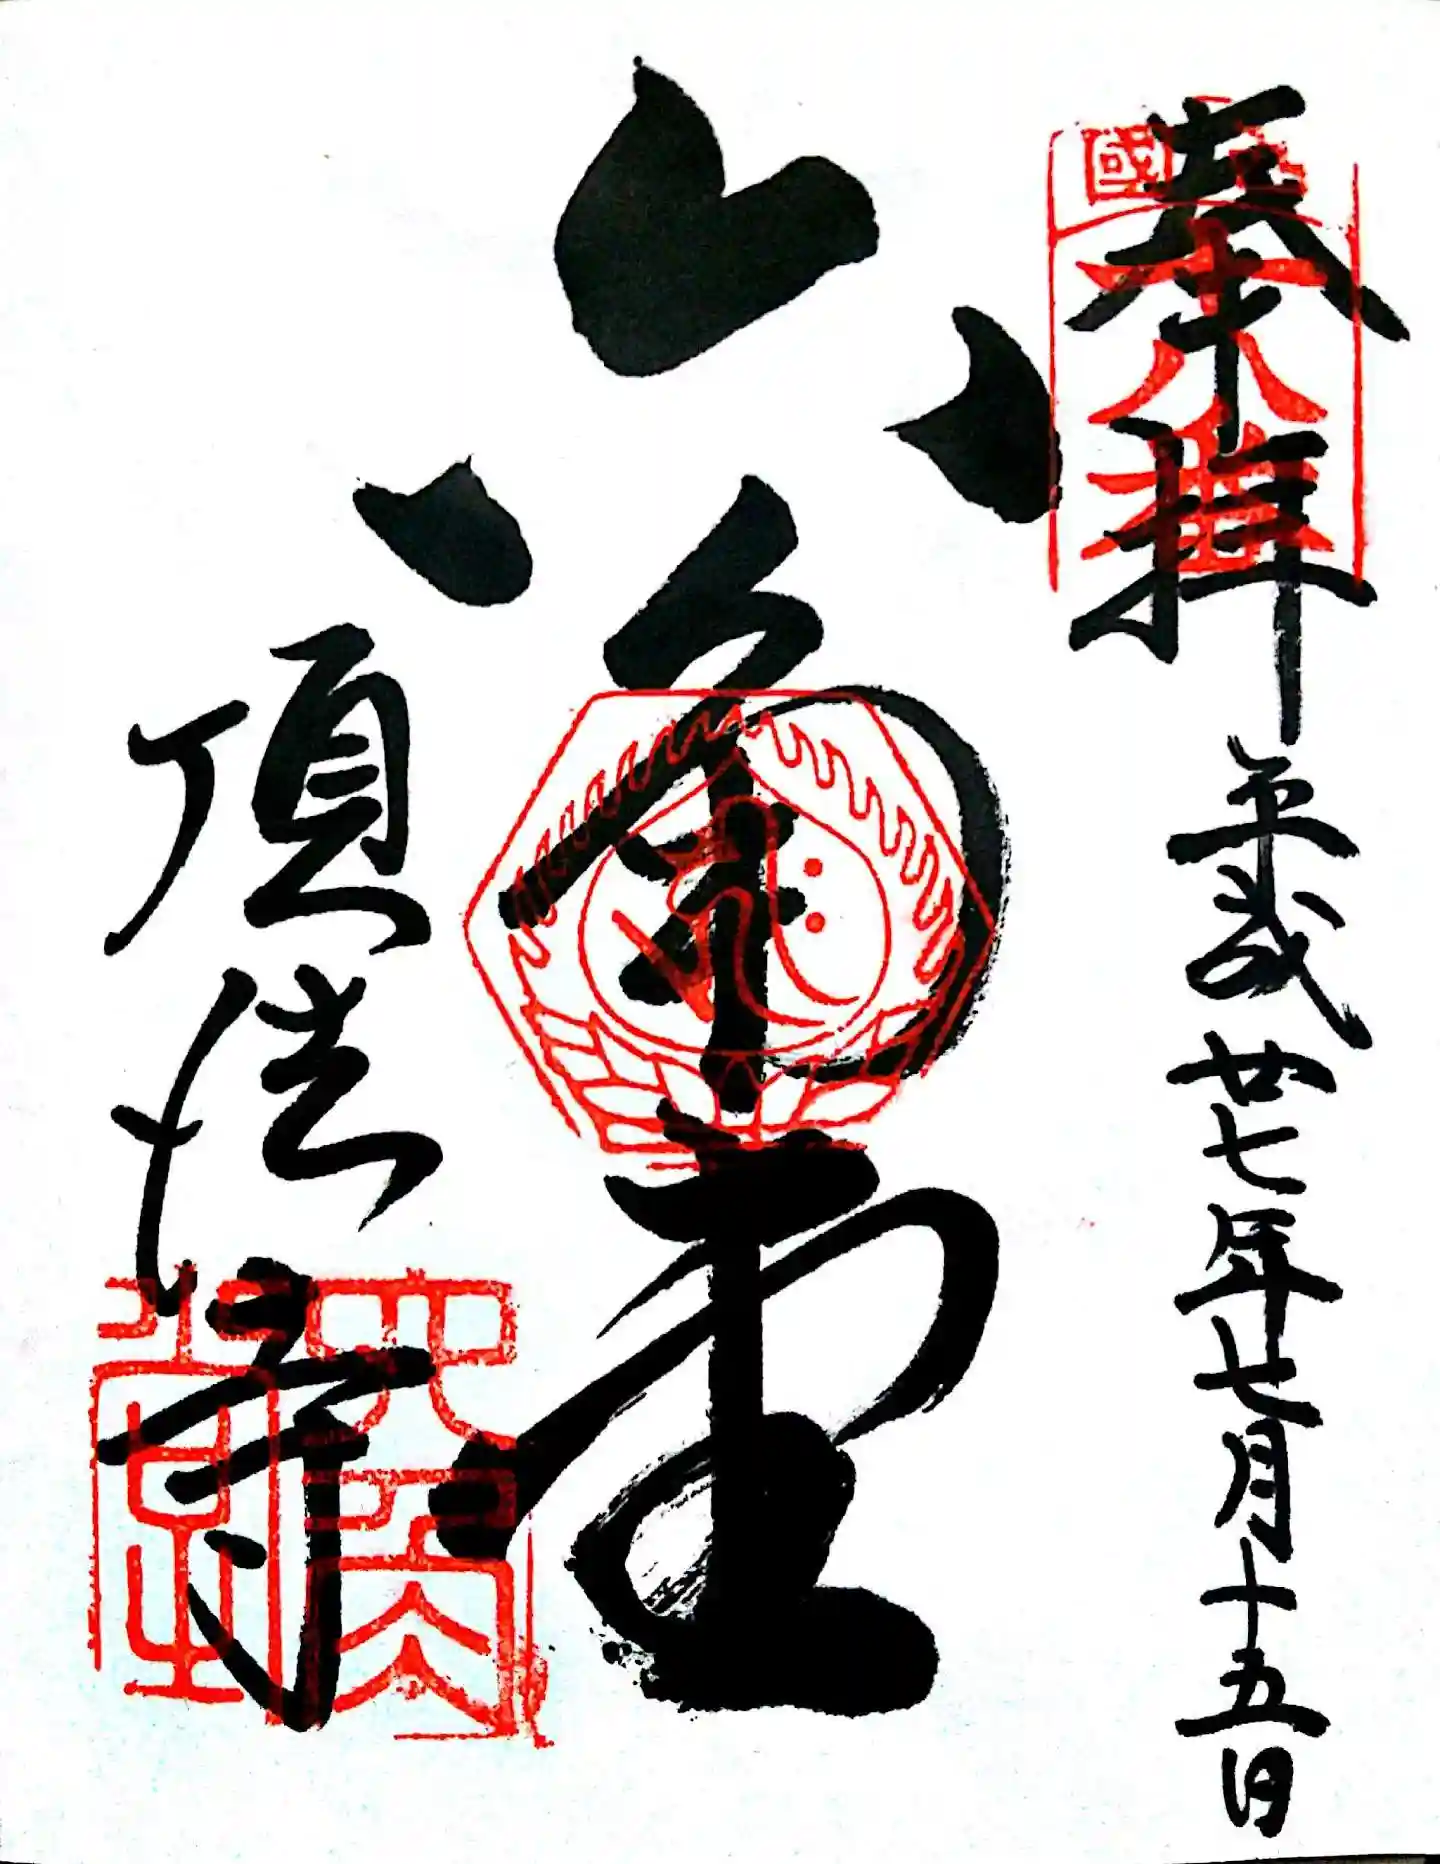 奉拝
平成廿七年七月十五日
西國
十八番
六角堂
頂法寺
六角堂